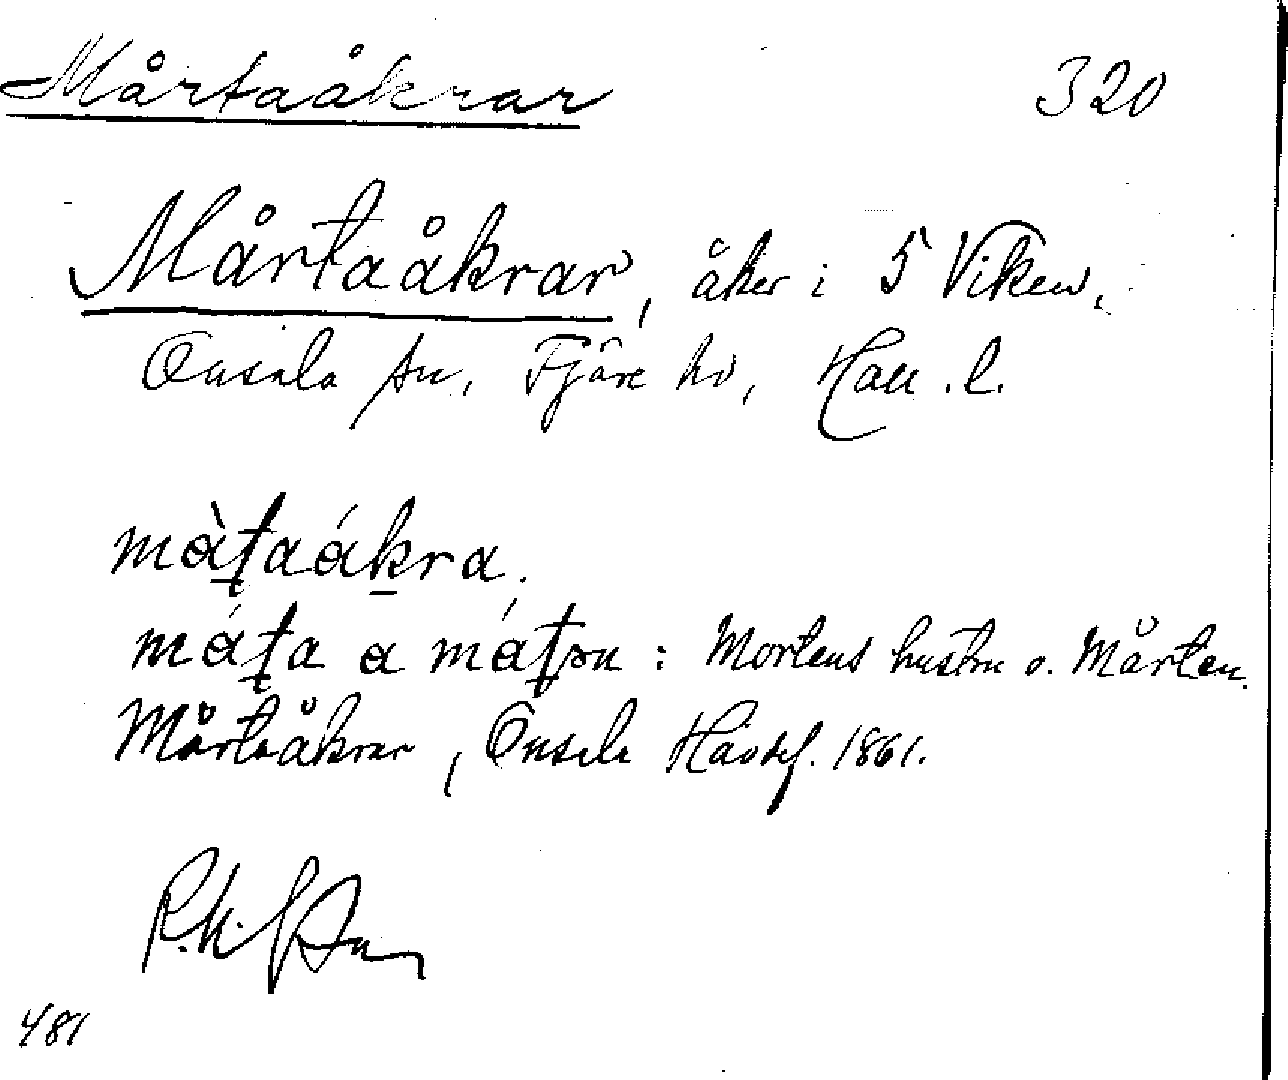 Mårtaåkrar 320
Mårtaåkrar, åker i 5 Viken,
Onsala sn, Fjäre hd, Hall. l.
màt̲aák̲ra.
mát̲a a mát̲ɔn : Mortens hustru o. Mårten.
Mårtaåkrar, Onsala Hävdef. 1861.
481